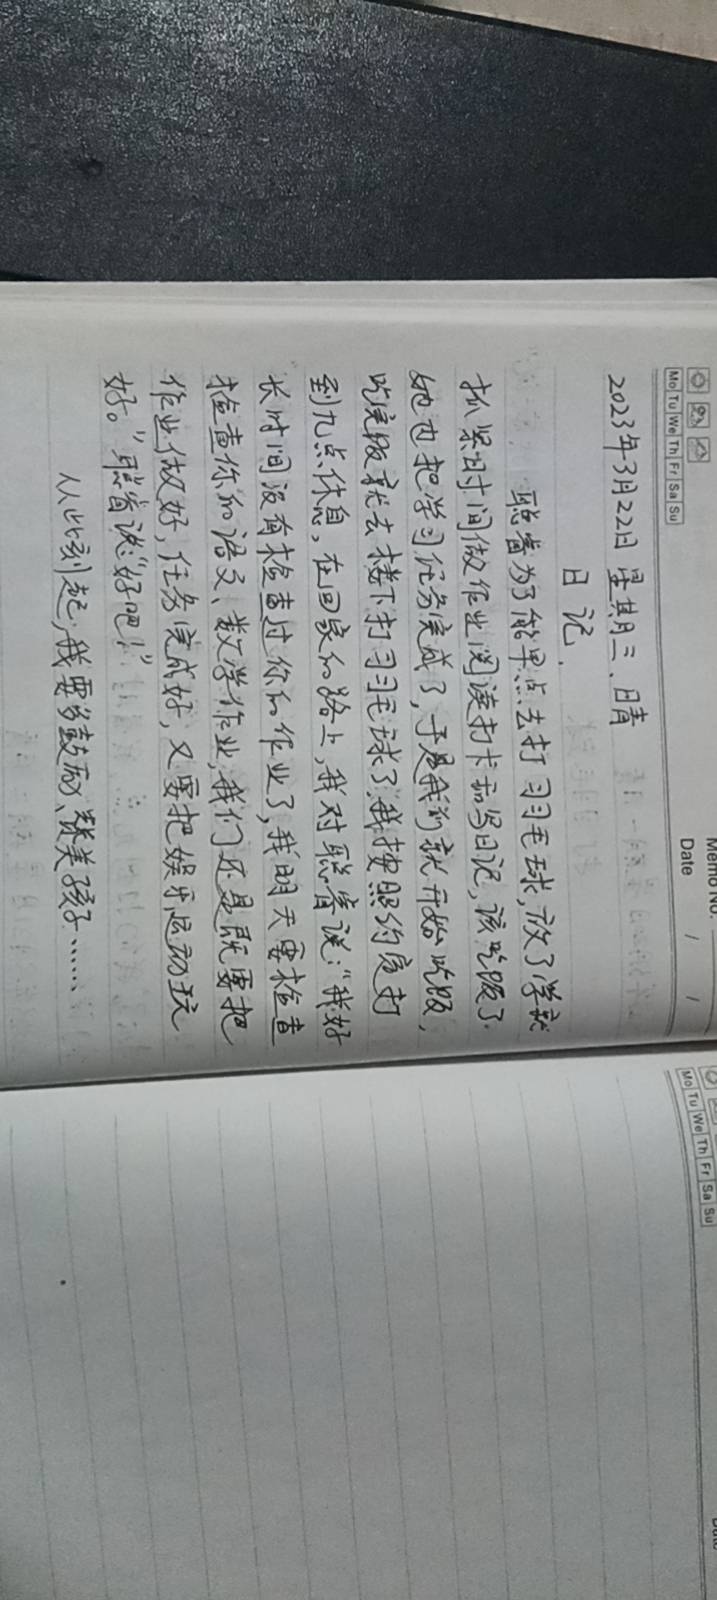 Memo No.
Mo Tu We Th Fr Sa Su
Date / /
2023年3月22日 星期三、晴
日记.
聪睿为了能早点去打羽毛球,放了学就
抓紧时间做作业阅读打卡和写日记,该吃饭了
她也把学习任务完成了,于是我们就开始吃饭,
吃完饭就去楼下打羽毛球了.我按照约定打
到九点休息,在回家的路上,我对聪睿说:“我好
长时间没有检查过你的作业了,我明天要检查
检查你的语文、数学作业,我们还是既要把
作业做好,任务完成好,又要把娱乐运动玩
好。”聪睿说:“好吧!”
从此刻起,我要多鼓励、赞美孩子……
Mo Tu We Th Fr Sa Su